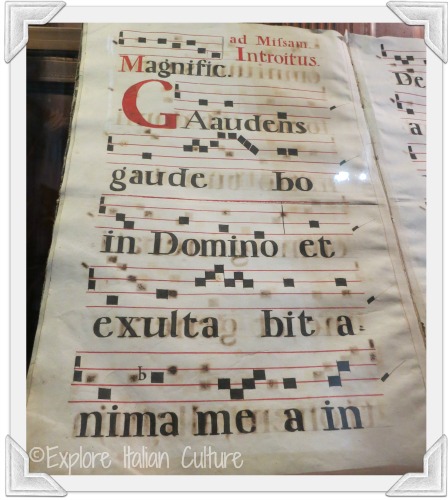 ad Missam
Magnific. Introitus.
GAaudens
gaude bo
in Domino et
exulta bit a
nima me a in
De
a
©Explore Italian Culture